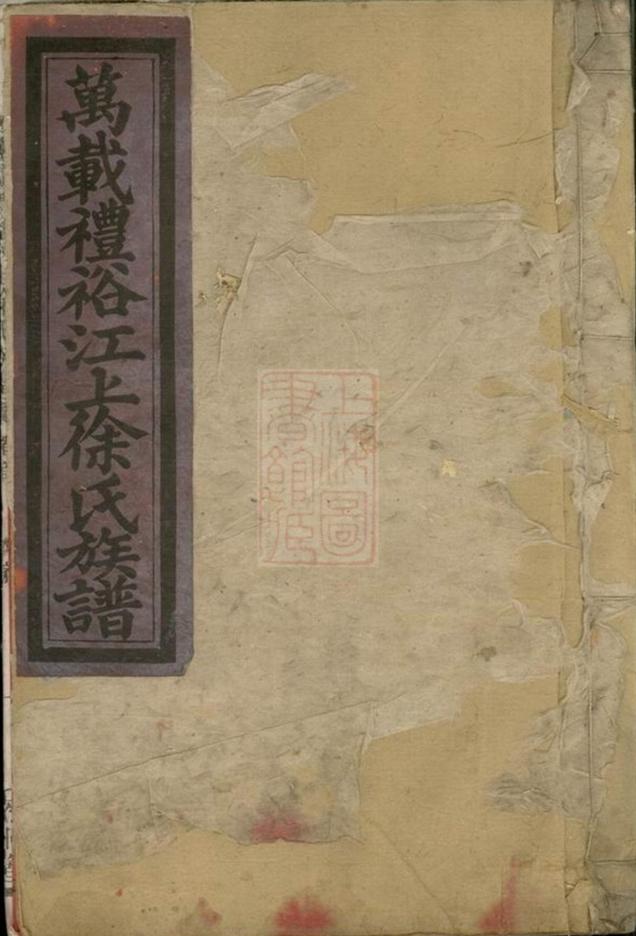 萬載禮裕江上徐氏族譜
上海圖
書館藏